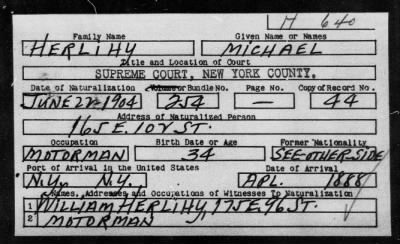 H 640
Family Name Given Name or Names
HERLIHY MICHAEL
Title and Location of Court
SUPREME COURT, NEW YORK COUNTY.
Date of Naturalization Volume or Bundle No. Page No. Copy of Record No.
JUNE 22-1904 254 — 44
Address of Naturalized Person
165 E. 102 ST.
Occupation Birth Date or Age Former Nationality
MOTORMAN 34 SEE OTHER SIDE
Port of Arrival in the United States Date of Arrival
N.Y., N.Y. APL. 1888
Names, Addresses and Occupations of Witnesses To Naturalization
1 WILLIAM HERLIHY, 175 E. 96 ST.
2 MOTORMAN